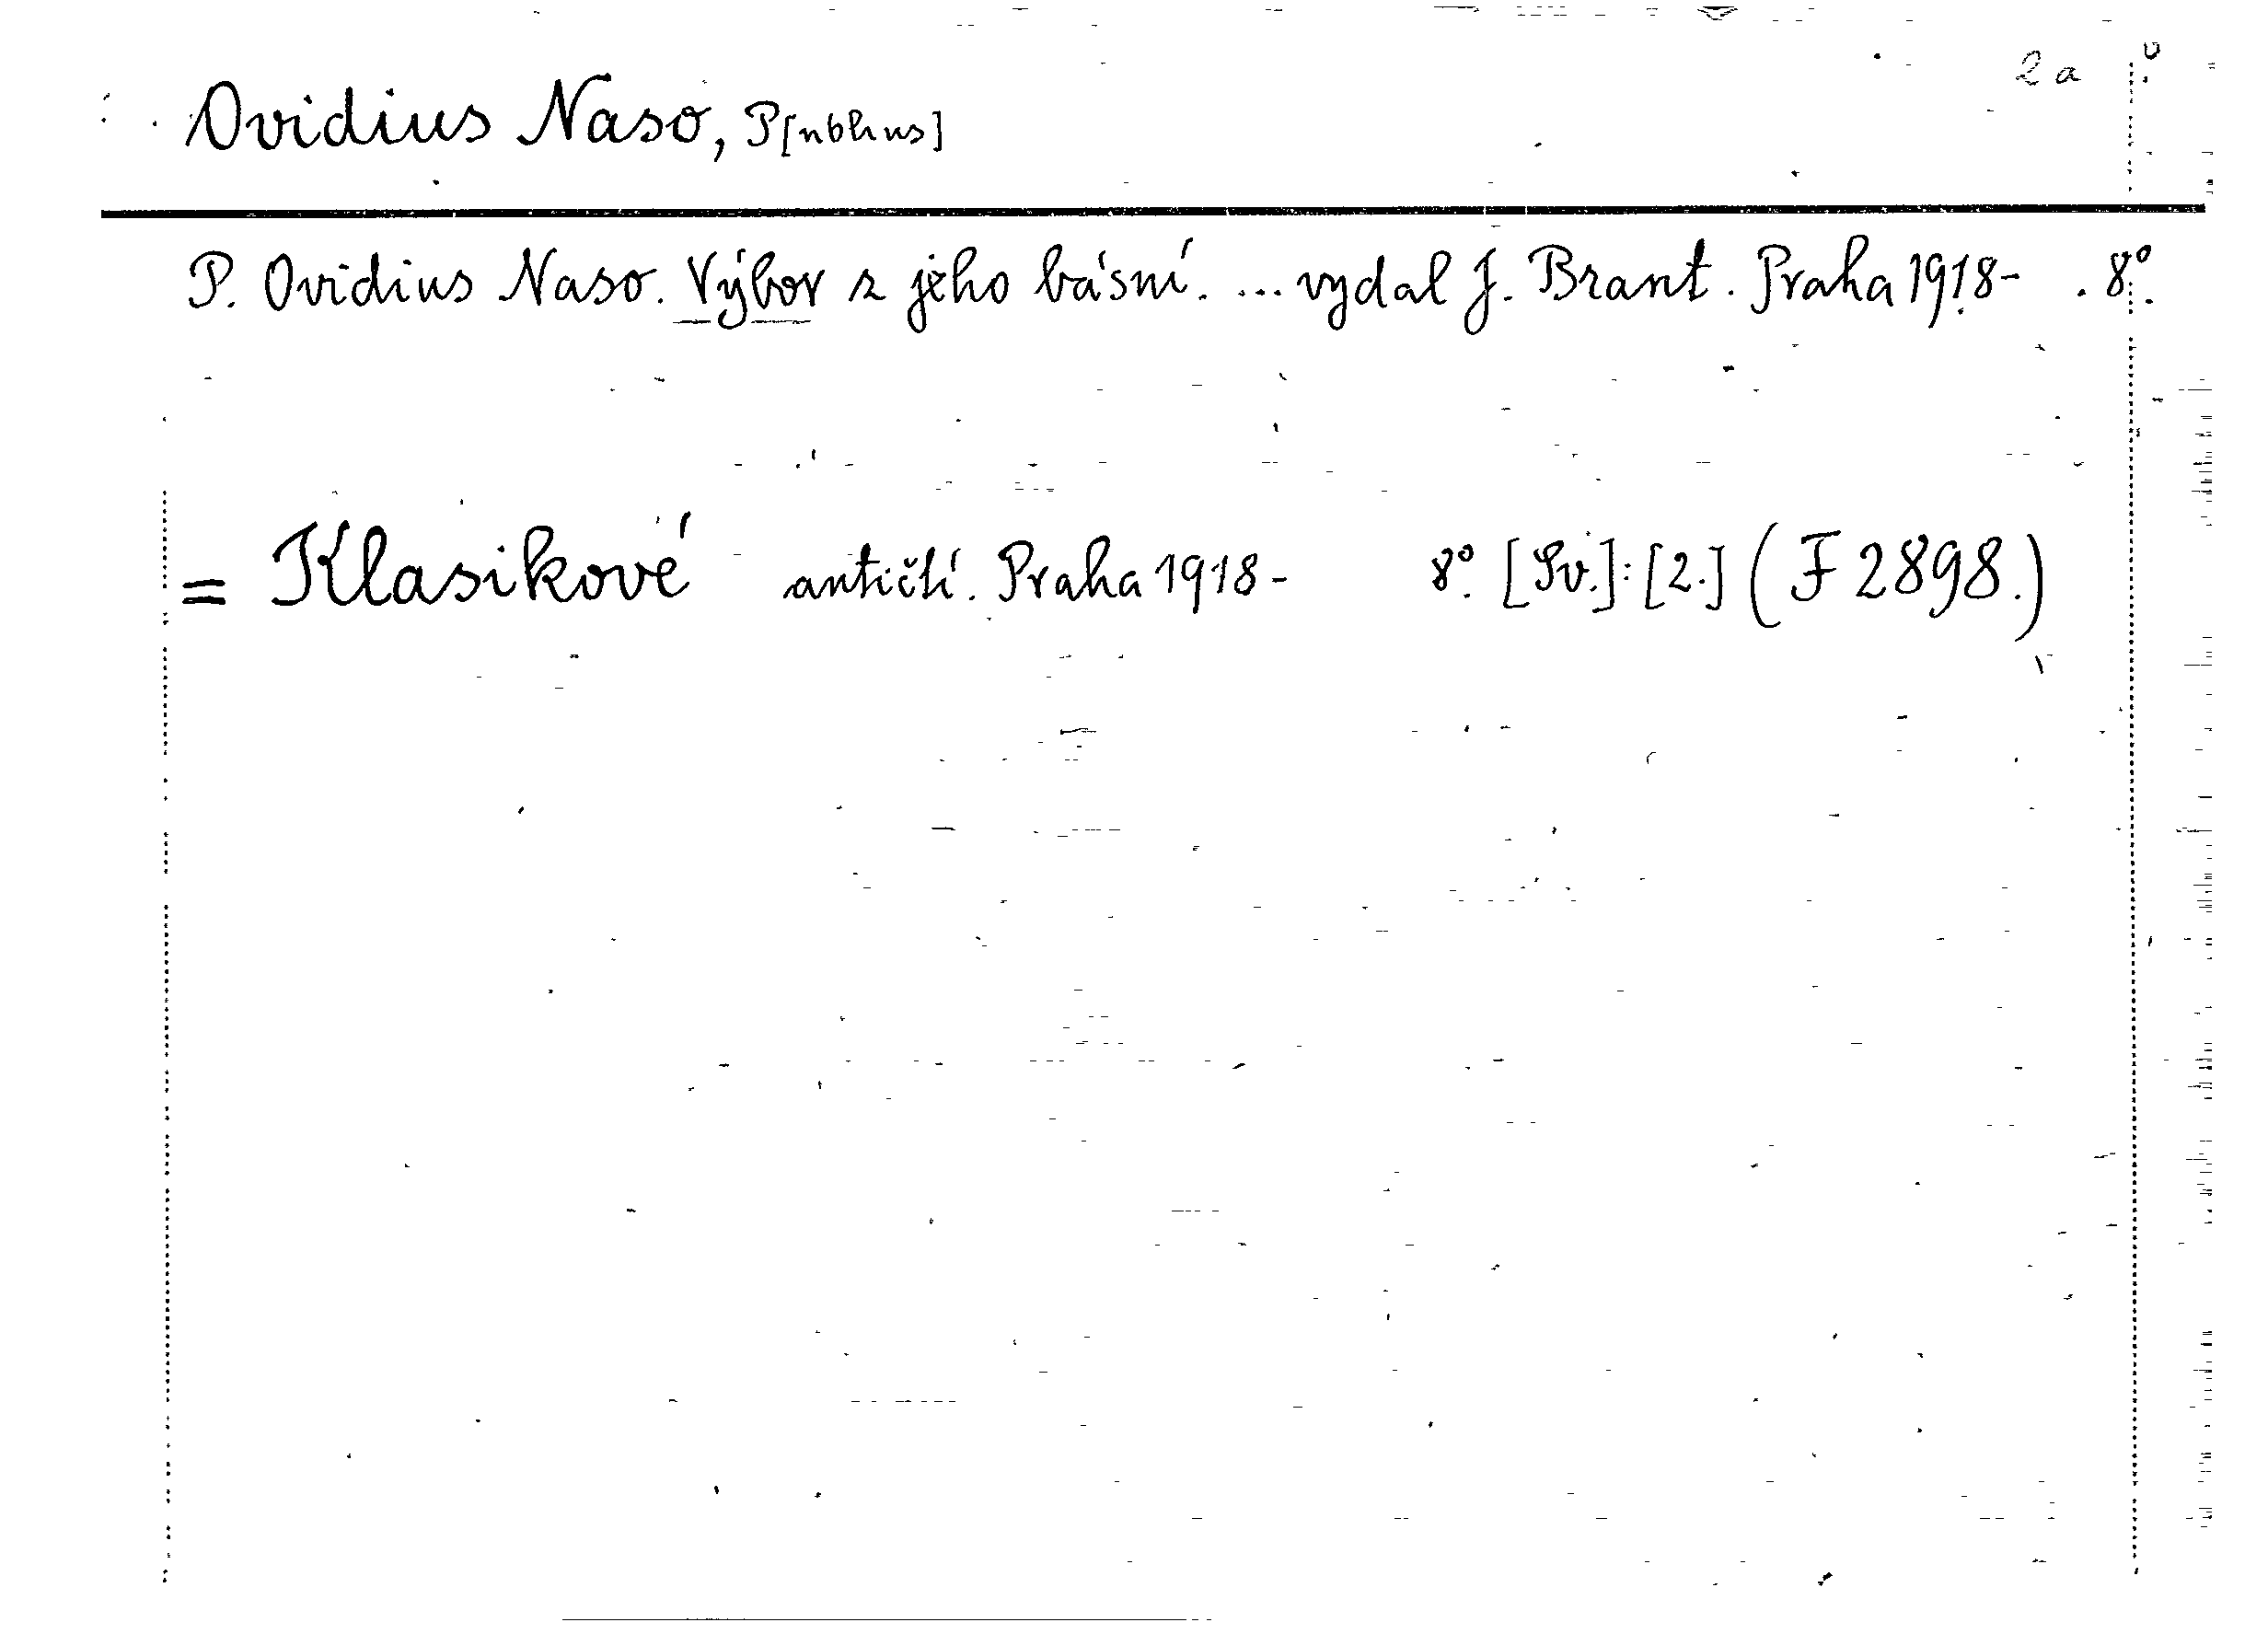 2a
Ovidius Naso, P[ublius]
P. Ovidius Naso. Výbor z jeho básní. ... vydal J. Brant. Praha 1918- . 8°.
= Klasikové antičtí. Praha 1918- 8°. [Sv.]: [2.] (F 2898.)